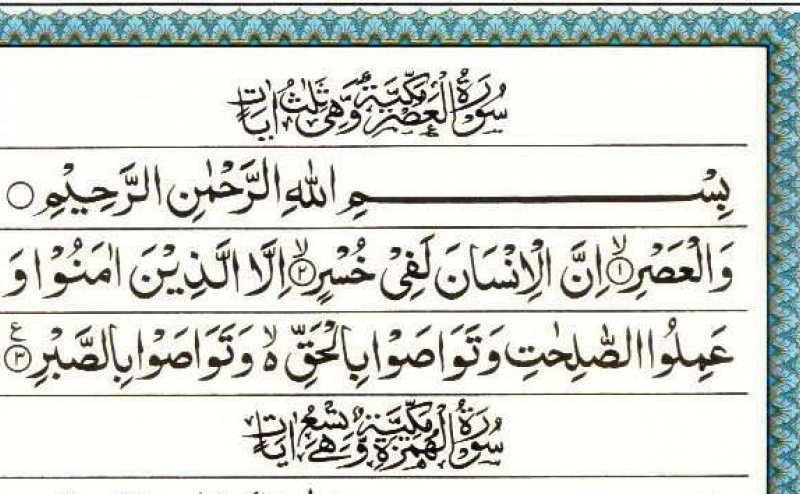 سُوْرَةُ الْعَصْرِ مَكِّيَّةٌ وَّهِيَ ثَلٰثُ اٰيَاتٍ
بِسْمِ اللهِ الرَّحْمٰنِ الرَّحِيْمِ ○
وَالْعَصْرِ ۙ﴿۱﴾ اِنَّ الْاِنْسَانَ لَفِيْ خُسْرٍ ۙ﴿۲﴾ اِلَّا الَّذِيْنَ اٰمَنُوْا وَ
عَمِلُوا الصّٰلِحٰتِ وَتَوَاصَوْا بِالْحَقِّ ۙ۬ وَتَوَاصَوْا بِالصَّبْرِ ﴿۳﴾ ع
سُوْرَةُ الْهُمَزَةِ مَكِّيَّةٌ وَّهِيَ تِسْعُ اٰيَاتٍ